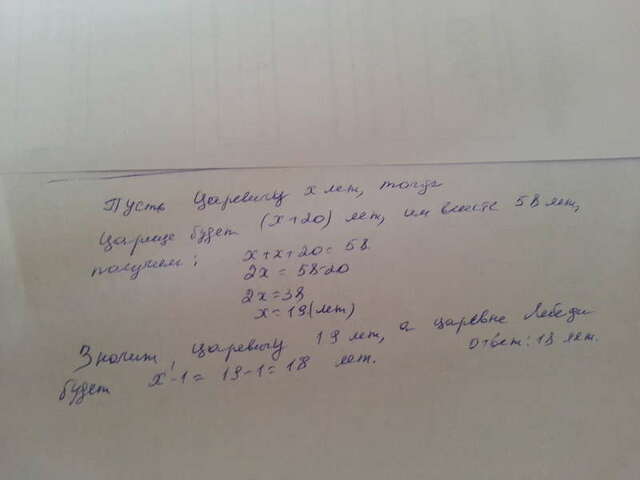 Пусть Царевичу x лет, тогда
Царице будет (x+20) лет, им вместе 58 лет,
получаем: x+x+20=58
2x = 58-20
2x=38
x=19(лет)
Значит, царевичу 19 лет, а царевне Лебеди
будет x-1= 19-1=18 лет. Ответ: 18 лет.